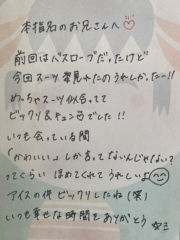 本指名のお兄さんへ♡
前回はバスローブだったけど
今回スーツ姿見れたのうれしかったー!!
めっちゃスーツ似合ってて
ビックリ&キュン です!!
いつも会っている間
「かわいい」しか言ってないんじゃない?
ってくらい ほめてくれてうれしいよ
アイスの件 ビックリしたね(笑)
いつも幸せな時間をありがとう